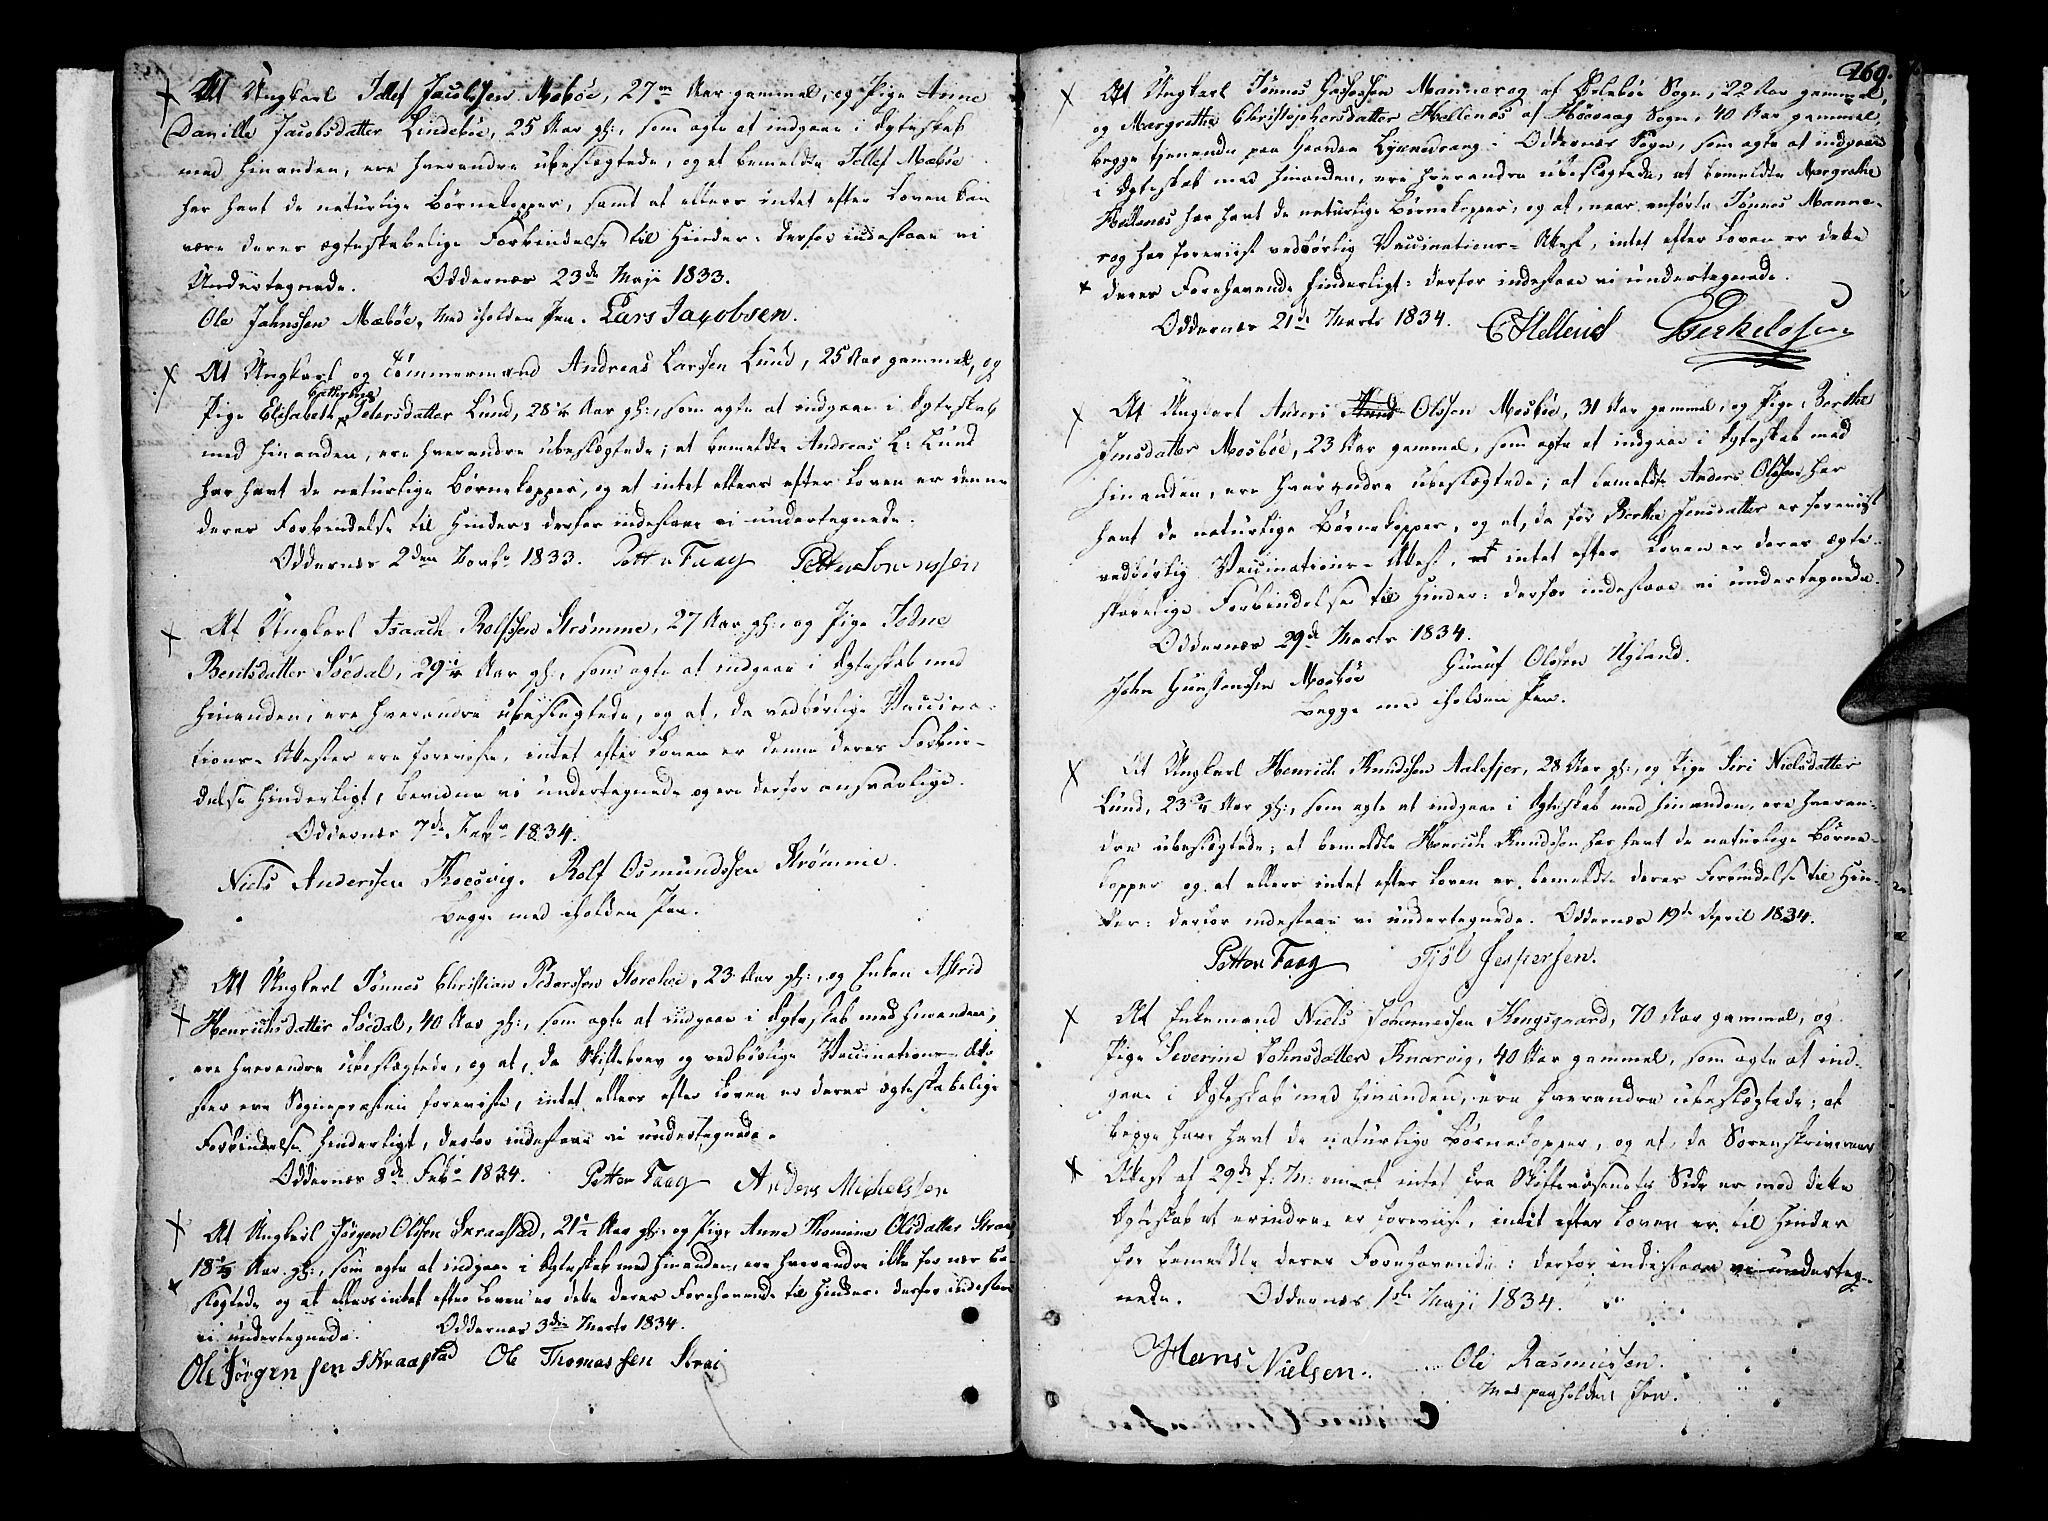 At Ungkarl Tellef Jacobsen Mæbøe, 27 Aar gammel, og Pige Anne
Danille Jacobsdatter Lindebøe, 25 Aar gl:, som agte at indgaae i Ægteskab
med hinanden, ere hverandre ubeslægtede, og at bemeldte Tellef Mæbøe
har havt de naturlige Børnekopper, samt at ellers intet efter Loven kan
være deres ægteskabelige Forbindelse til Hinder: derfor indestaae vi
Undertegnede. Oddernæs 23de Maji 1833.
Ole Johnssen Mæbøe, med iholden Pen. Lars Jacobsen.
At Ungkarl og Tømmermand Andreas Larssen Lund, 25 Aar gammel, og
Cathrine
Pige Elisabeth Petersdatter Lund, 28 1/4 Aar gl:, som agte at indgaae i Ægteskab
med hinanden, ere hverandre ubeslægtede; at bemeldte Andreas L: Lund
har havt de naturlige Børnekopper, og at intet ellers efter Loven er denne
deres Forbindelse til Hinder: derfor indestaae vi undertegnede.
Oddernæs 2den 1833. Petter Faag Petter Sørenssen
At Ungkarl Isaach Rolfssen Strømme, 27 Aar gl:, og Pige Tedne
Bentsdatter Søedal, 29 1/4 Aar gl:, som agte at indgaae i Ægteskab med
hinanden, ere hverandre ubeslægtede, og at, da vedbørlige Vaccina-
tions-Attester ere foreviste, intet efter Loven er denne deres Forbin-
delse hinderligt, bevidne vi undertegnede og ere derfor ansvarlige.
Oddernæs 7de Febr 1834.
Niels Anderssen Kocsvig. Rolf Osmundssen Strømme.
begge med iholden Pen.
At Ungkarl Tønnes Christian Pederssen 23 Aar gl:, og Enken Astrid
Henrichsdatter Søedal, 40 Aar gl:, som agte at indgaae i Ægteskab med hinanden,
ere hverandre ubeslægtede, og at, da Skiftebrev og vedbørlige Vaccinations-Atte-
ster ere Sognepræsten foreviste, intet ellers efter Loven er deres ægteskabelige
Forbindelse hinderligt, derfor indestaae vi undertegnede.
Oddernæs 8de Febr 1834. Petter Faag Anders Michelssen
At Ungkarl Jørgen Olssen Skraastad, 21 1/2 Aar gl: og Pige Anne Thomine Olsdatter Straai
18 Aar gl:, som agte at indgaae i Ægteskab med hinanden, ere hverandre ikke for nær be-
slægtede og at ellers intet efter Loven er dette deres Forehavende til Hinder: derfor indestaae
vi undertegnede. Oddernæs 3die Marts 1834.
Ole Jørgensen Skraastad Ole Thomassen Strai
269.
At Ungkarl Tønnes Mannerog af Øslebøe Sogn, 22 Aar gammel,
og Margrethe Christophersdatter Hellenes af Høivaag Sogn, 40 Aar gammel,
begge tjenende paa Gaarden i Oddernæs Sogn, som agte at indgaae
i Ægteskab med hinanden, ere hverandre ubeslægtede, at bemeldte Margrethe
Hellenes har havt de naturlige Børnekopper, og at, naar anførte Tønnes Manne-
rog har foreviist vedbørlig Vaccinations-Attest, intet efter Loven er dette
deres Forehavende hinderligt: derfor indestaae vi undertegnede.
Oddernæs 21de Marts 1834. C Hellend
At Ungkarl Anders Olssen Mosbøe, 31 Aar gammel, og Pige Berthe
Jensdatter Mosbøe, 23 Aar gammel, som agte at indgaae i Ægteskab med
hinanden, ere hverandre ubeslægtede; at bemeldte Anders Olssen har
havt de naturlige Børnekopper, og at, da for Berthe Jensdatter er foreviist
vedbørlig Vaccinations-Attest, intet efter Loven er deres ægte-
skabelige Forbindelse til Hinder: derfor indestaae vi undertegnede.
Oddernæs 29de Marts 1834.
John Gunstensen Mosbøe Gunuf Olssen Ugland.
begge med iholden Pen.
At Ungkarl Henrich Knudssen Aalefjer, 28 Aar gl:, og Pige Siri Nielsdatter
Lund, 23 3/4 Aar gl:, som agte at indgaae i Ægteskab med hinanden, ere hveran-
dre ubeslægtede; at bemeldte Henrich Knudssen har havt de naturlige Børne-
kopper og at ellers intet efter Loven er bemeldte deres Forbindelse til Hin-
der: derfor indestaae vi undertegnede. Oddernæs 19de April 1834.
Petter Faag Tjøl Jespersen.
At Enkemand Niels Johannessen Kongsgaard, 70 Aar gammel, og
Pige Severine Johnsdatter Knarvig, 40 Aar gammel, som agte at ind-
gaae i Ægteskab med hinanden, ere hverandre ubeslægtede; at
begge have havt de naturlige Børnekopper, og at, da Sorenskriverens
Attest af 29de f: M: om at intet fra Skiftevæsenets Side er mod dette
Ægteskab at erindre, er foreviist, intet efter Loven er til Hinder
for bemeldte deres Forehavende: derfor indestaae vi underteg-
nede. Oddernæs 1ste Maji 1834.
Hans Nielsen. Ole Rasmussen.
med paaholden Pen.